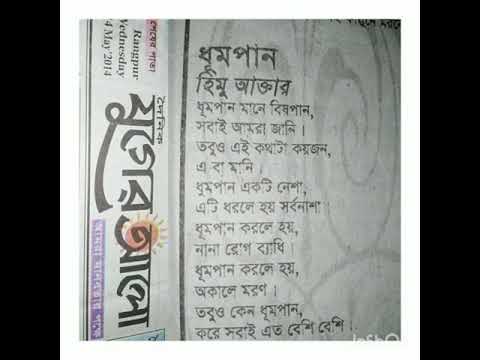 ধূমপান
হিমু আক্তার
ধূমপান মানে বিষপান,
সবাই আমরা জানি।
তবুও এই কথাটা কয়জন,
এ বা মানি।
ধুমপান একটি নেশা,
এটি ধরলে হয় সর্বনাশা।
ধূমপান করলে হয়,
নানা রোগ ব্যাধি।
ধূমপান করলে হয়,
অকালে মরণ।
তবুও কেন ধূমপান,
করে সবাই এত বেশি বেশি।
শেষের পাতা
Rangpur
Wednesday
4 May 2014
দৈনিক
যুগের আলো